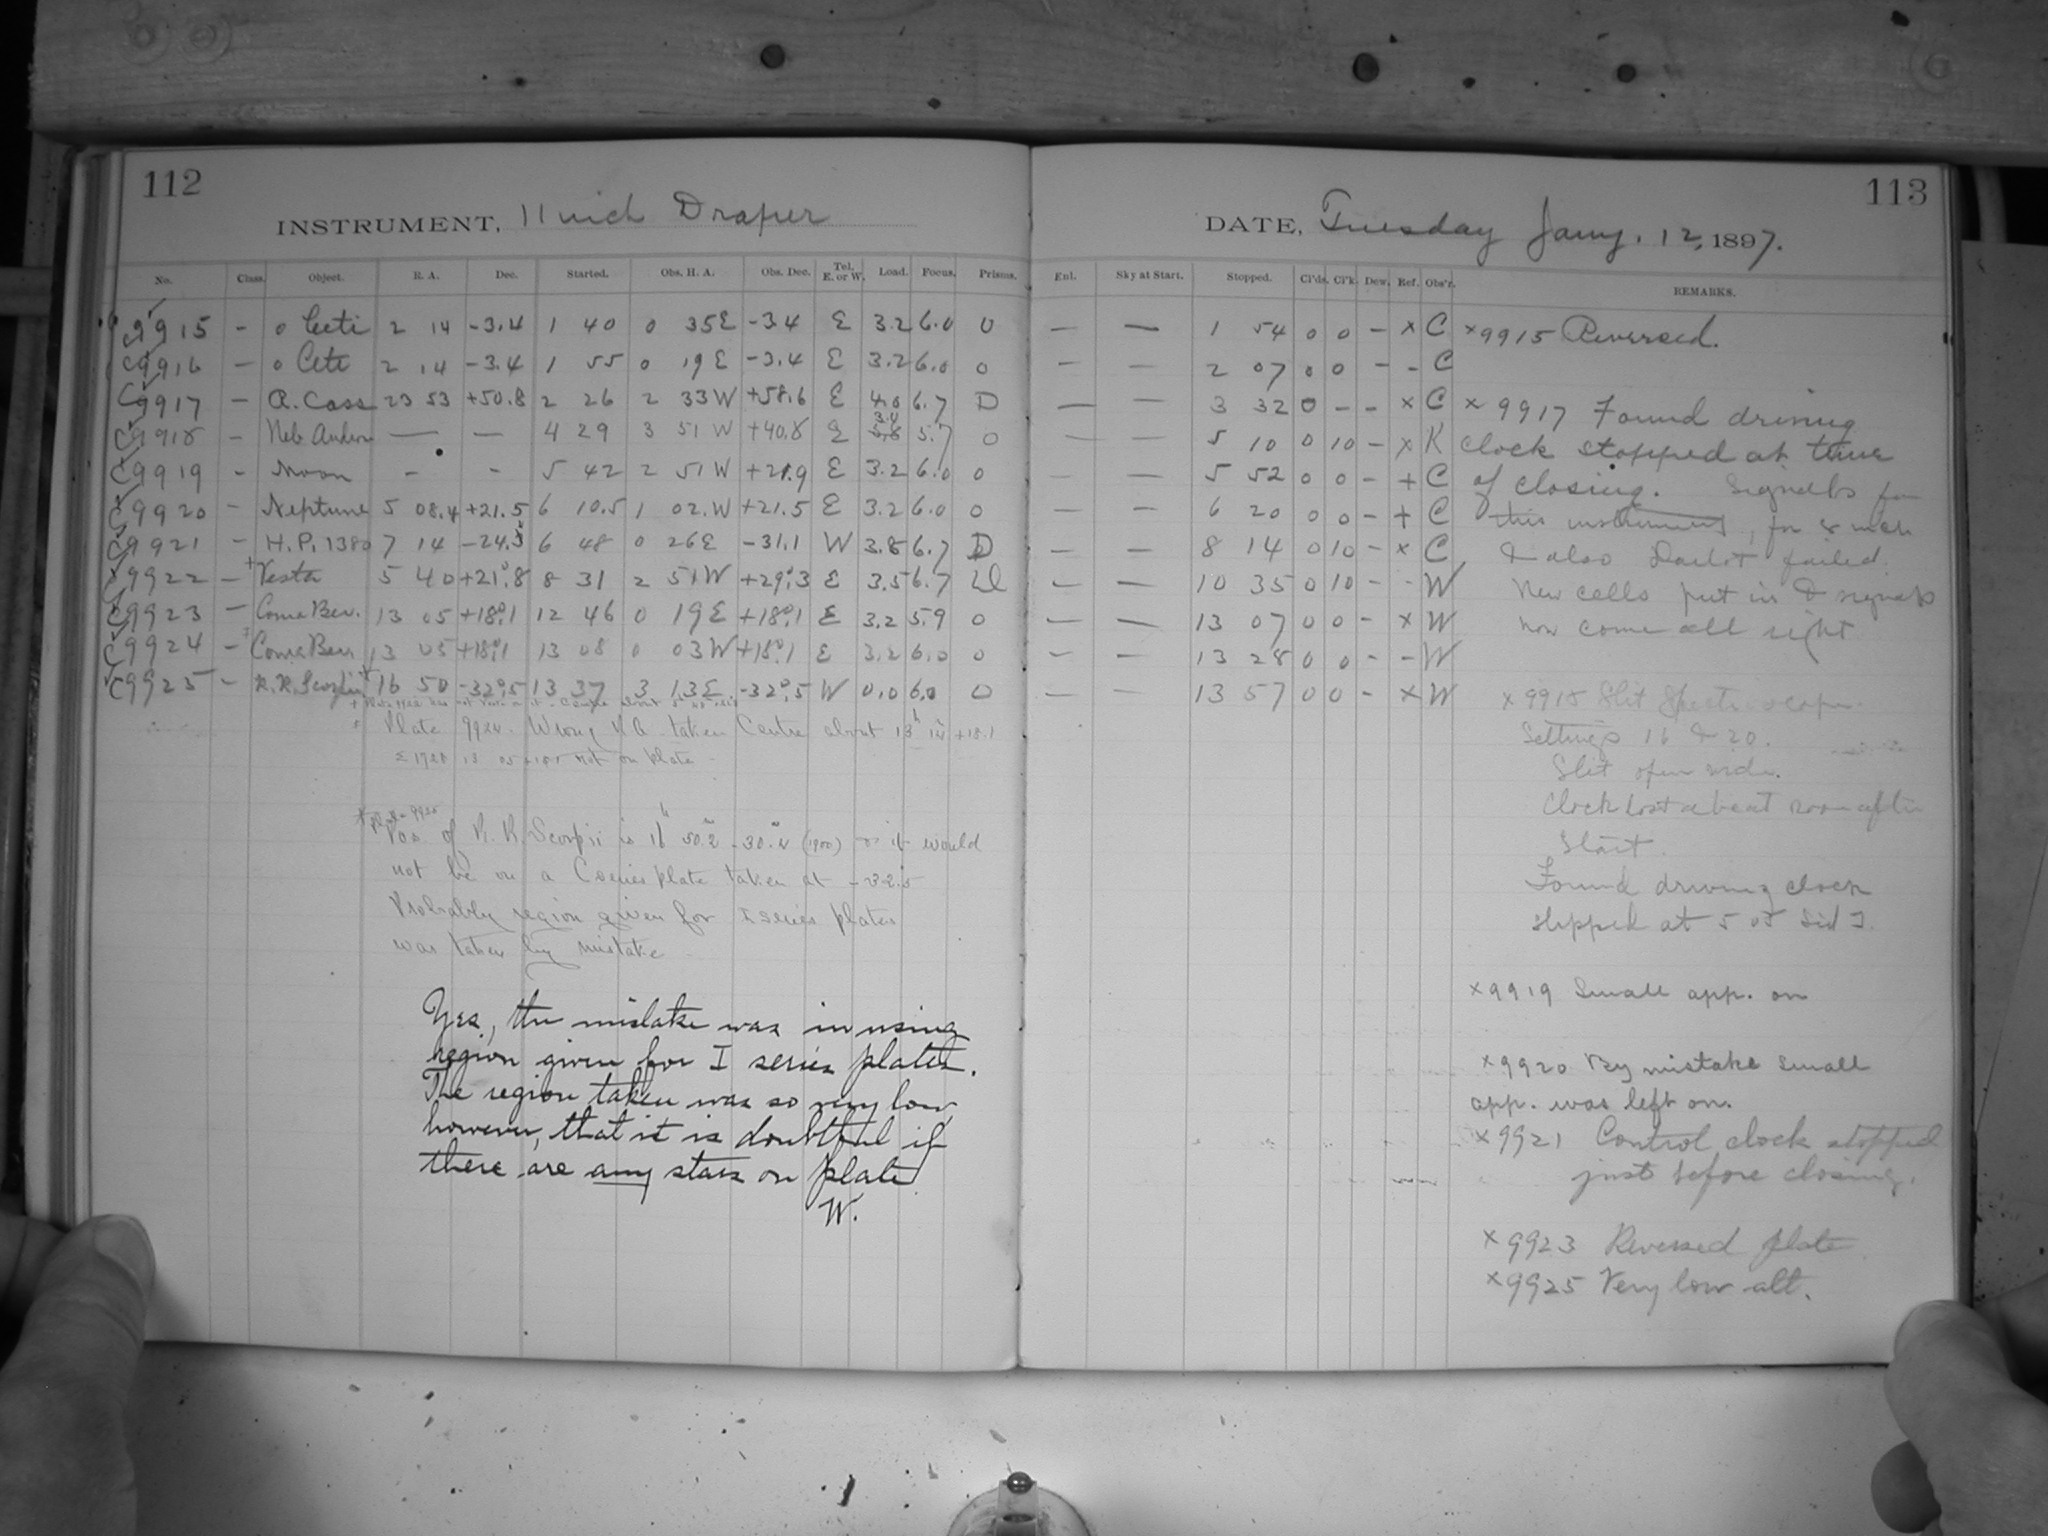 112
INSTRUMENT, 11 inch Draper
No. Class. Object. R. A. Dec. Started. Obs. H. A. Obs. Dec. Tel. E. or W. Load. Focus. Prisms.
C9915 - o Ceti 2 14 -3.4 1 40 0 35E -3.4 E 3.2 6.0 0
C9916 - o Ceti 2 14 -3.4 1 55 0 19E -3.4 E 3.2 6.0 0
C9917 - R. Cass 23 53 +50.8 2 26 2 33W +58.6 E 4.0 6.7 D
C9918 - Neb. Andro — — 4 29 3 51W +40.8 E 3.4 5.7 0
C9919 - Moon - - 5 42 2 51W +21.9 E 3.2 6.0 0
C9920 - Neptune 5 08.4 +21.5 6 10.5 1 02.W +21.5 E 3.2 6.0 0
C9921 - H.P. 1380 7 14 -24.5 6 48 0 26E -31.1 W 3.8 6.7 D
C9922 - +Vesta 5 40 +21°.8 8 31 2 51W +29°.3 E 3.5 6.7 D
C9923 - Coma Ber. 13 05 +18°.1 12 46 0 19E +18°.1 E 3.2 5.9 0
C9924 - ‡Coma Ber 13 05 +18°.1 13 08 0 03W +18°.1 E 3.2 6.0 0
C9925 - R.R. Scorpii 16 50 -32°.5 13 37 3 13E -32°.5 W 0.0 6.0 0
‡ Plate 9924. Wrong R A taken Centre about 13h 14m +18.1
Σ 1728 13 05 +18.1 not on plate
* Plate 9925
Pos. of R. R. Scorpii is 16h 50m.2 -30°.4 (1900) so it would
not be on a C series plate taken at -32.5
Probably region given for I series plates
was taken by mistake
Yes, the mistake was in using
region given for I series plates.
The region taken was so very low
however, that it is doubtful if
there are any stars on plate
W.
113
DATE, Tuesday Jany. 12, 1897.
Enl. Sky at Start. Stopped. Cl'ds. Cl'k. Dew. Ref. Obs'r. REMARKS.
— — 1 54 0 0 - x C x9915 Reversed.
— — 2 07 0 0 - - C
— — 3 32 0 - - x C x 9917 Found driving
— — 5 10 0 10 - x K clock stopped at time
— — 5 52 0 0 - + C of closing. Signals for
— — 6 20 0 0 - + C this instrument, for 8 inch
— — 8 14 0 10 - x C & also failed.
— — 10 35 0 10 - - W New cells put in & signals
— — 13 07 0 0 - x W now come all right
— — 13 28 0 0 - - W
— — 13 57 0 0 - x W x 9918 Slit Spectroscope.
Settings 16 & 20.
Slit open wide.
Clock lost a beat soon after
Start.
Found driving clock
stopped at 5 08 Sid T.
x9919 Small app. on
x9920 By mistake small
app. was left on.
x9921 Control clock stopped
just before closing.
x9923 Reversed plate
x9925 Very low alt.